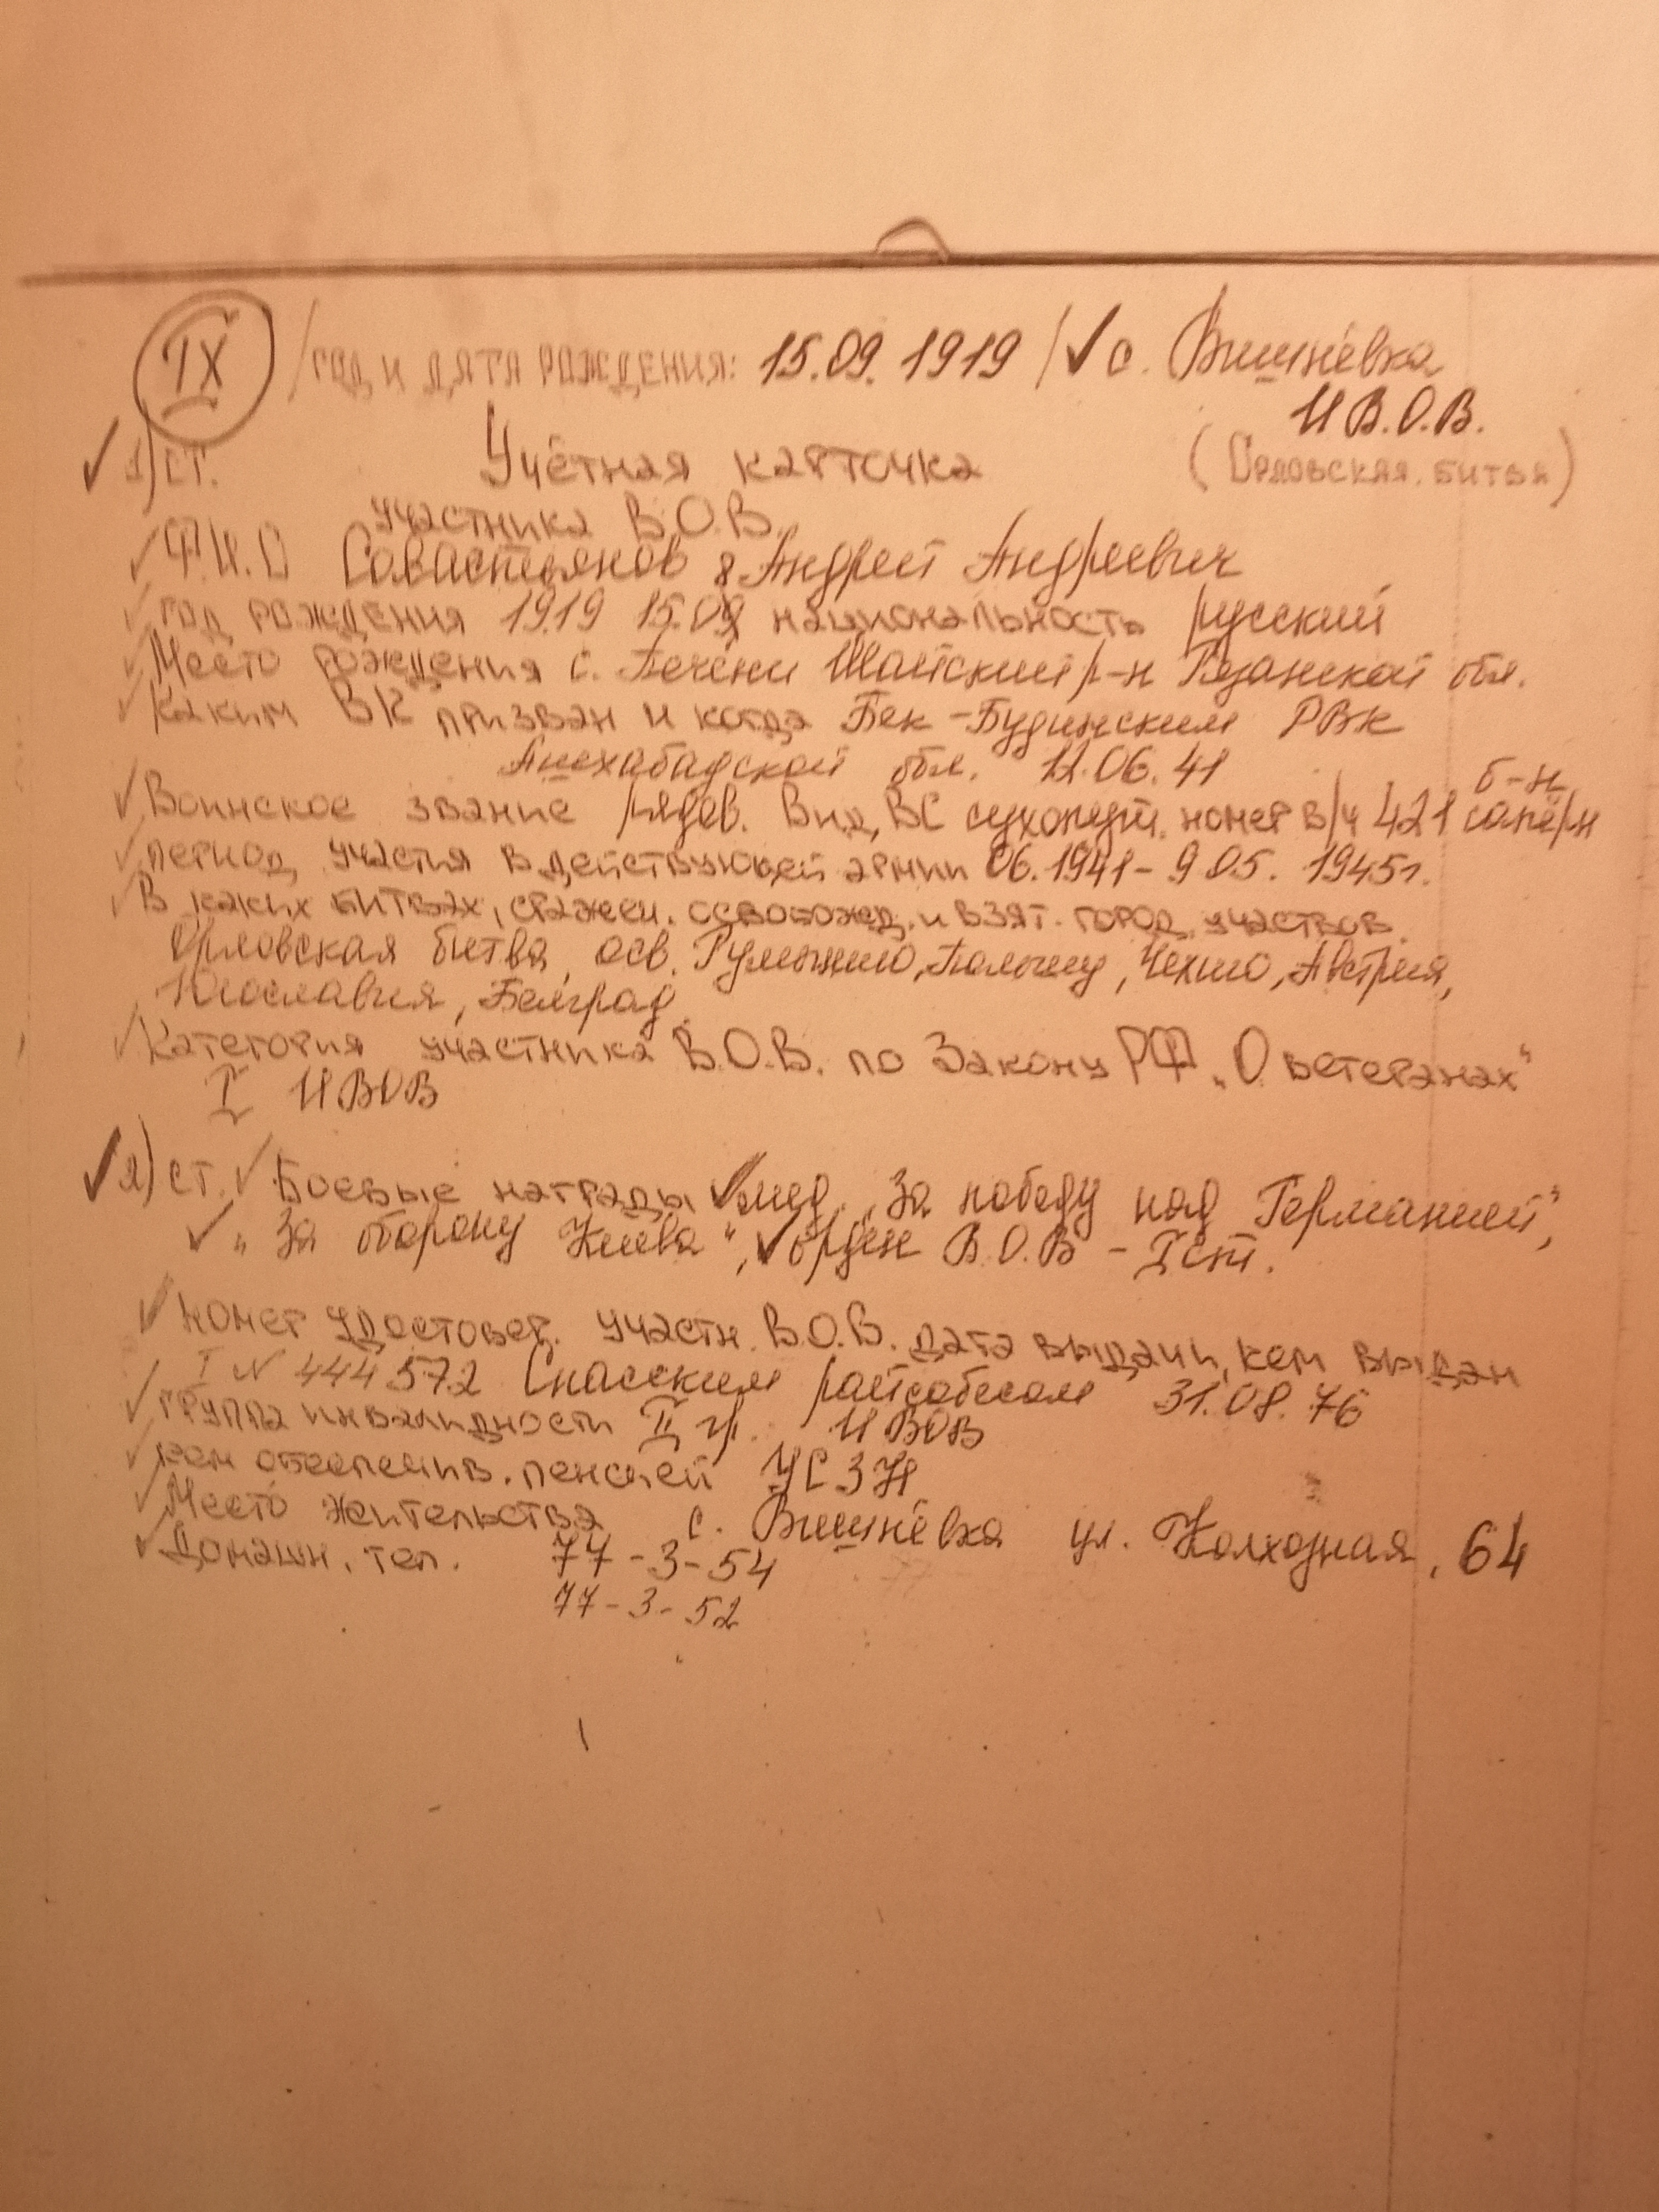 IX /ГОД И ДАТА РОЖДЕНИЯ: 15.09.1919/ ✓ с. Вишнёвка
И В.О.В.
✓ 1) СТ. Учётная карточка (Орловская битва)
участника В.О.В.
✓ Ф.И.О Савастьянов Андрей Андреевич
✓ год рождения 1919 15.09 национальность русский
✓ Место рождения с. Печёни Шатский р-н Рязанской обл.
✓ Каким ВК призван и когда Бек-Будинским РВК
Ашхабадской обл. 12.06.41
б-н
✓ Воинское звание рядов. Вид ВС сухопут. номер в/ч 421 сапёрн
✓ период участия в действующей армии 06.1941 - 9 05. 1945г.
✓ В каких битвах, сражен. освобожд. и взят. город. участвов.
Орловская битва, осв. Румынию, Польшу, Чехию, Австрия,
Югославия, Белград
✓ Категория участника В.О.В. по Закону РФ „О ветеранах"
I ИВОВ
✓ 2) ст. ✓ Боевые награды ✓ мед. „За победу над Германией",
✓ „За оборону Киева", ✓ орден В.О.В - I ст.
✓ номер удостовер. участн. В.О.В. дата выдачи, кем выдан
✓ I № 444572 Спасским райсобесом 31.08.76
✓ группа инвалидности II гр. ИВОВ
✓ кем обеспечив. пенсией УСЗН
✓ Место жительства с. Вишнёвка ул. Колхозная, 64
✓ Домашн. тел. 77-3-54
77-3-52